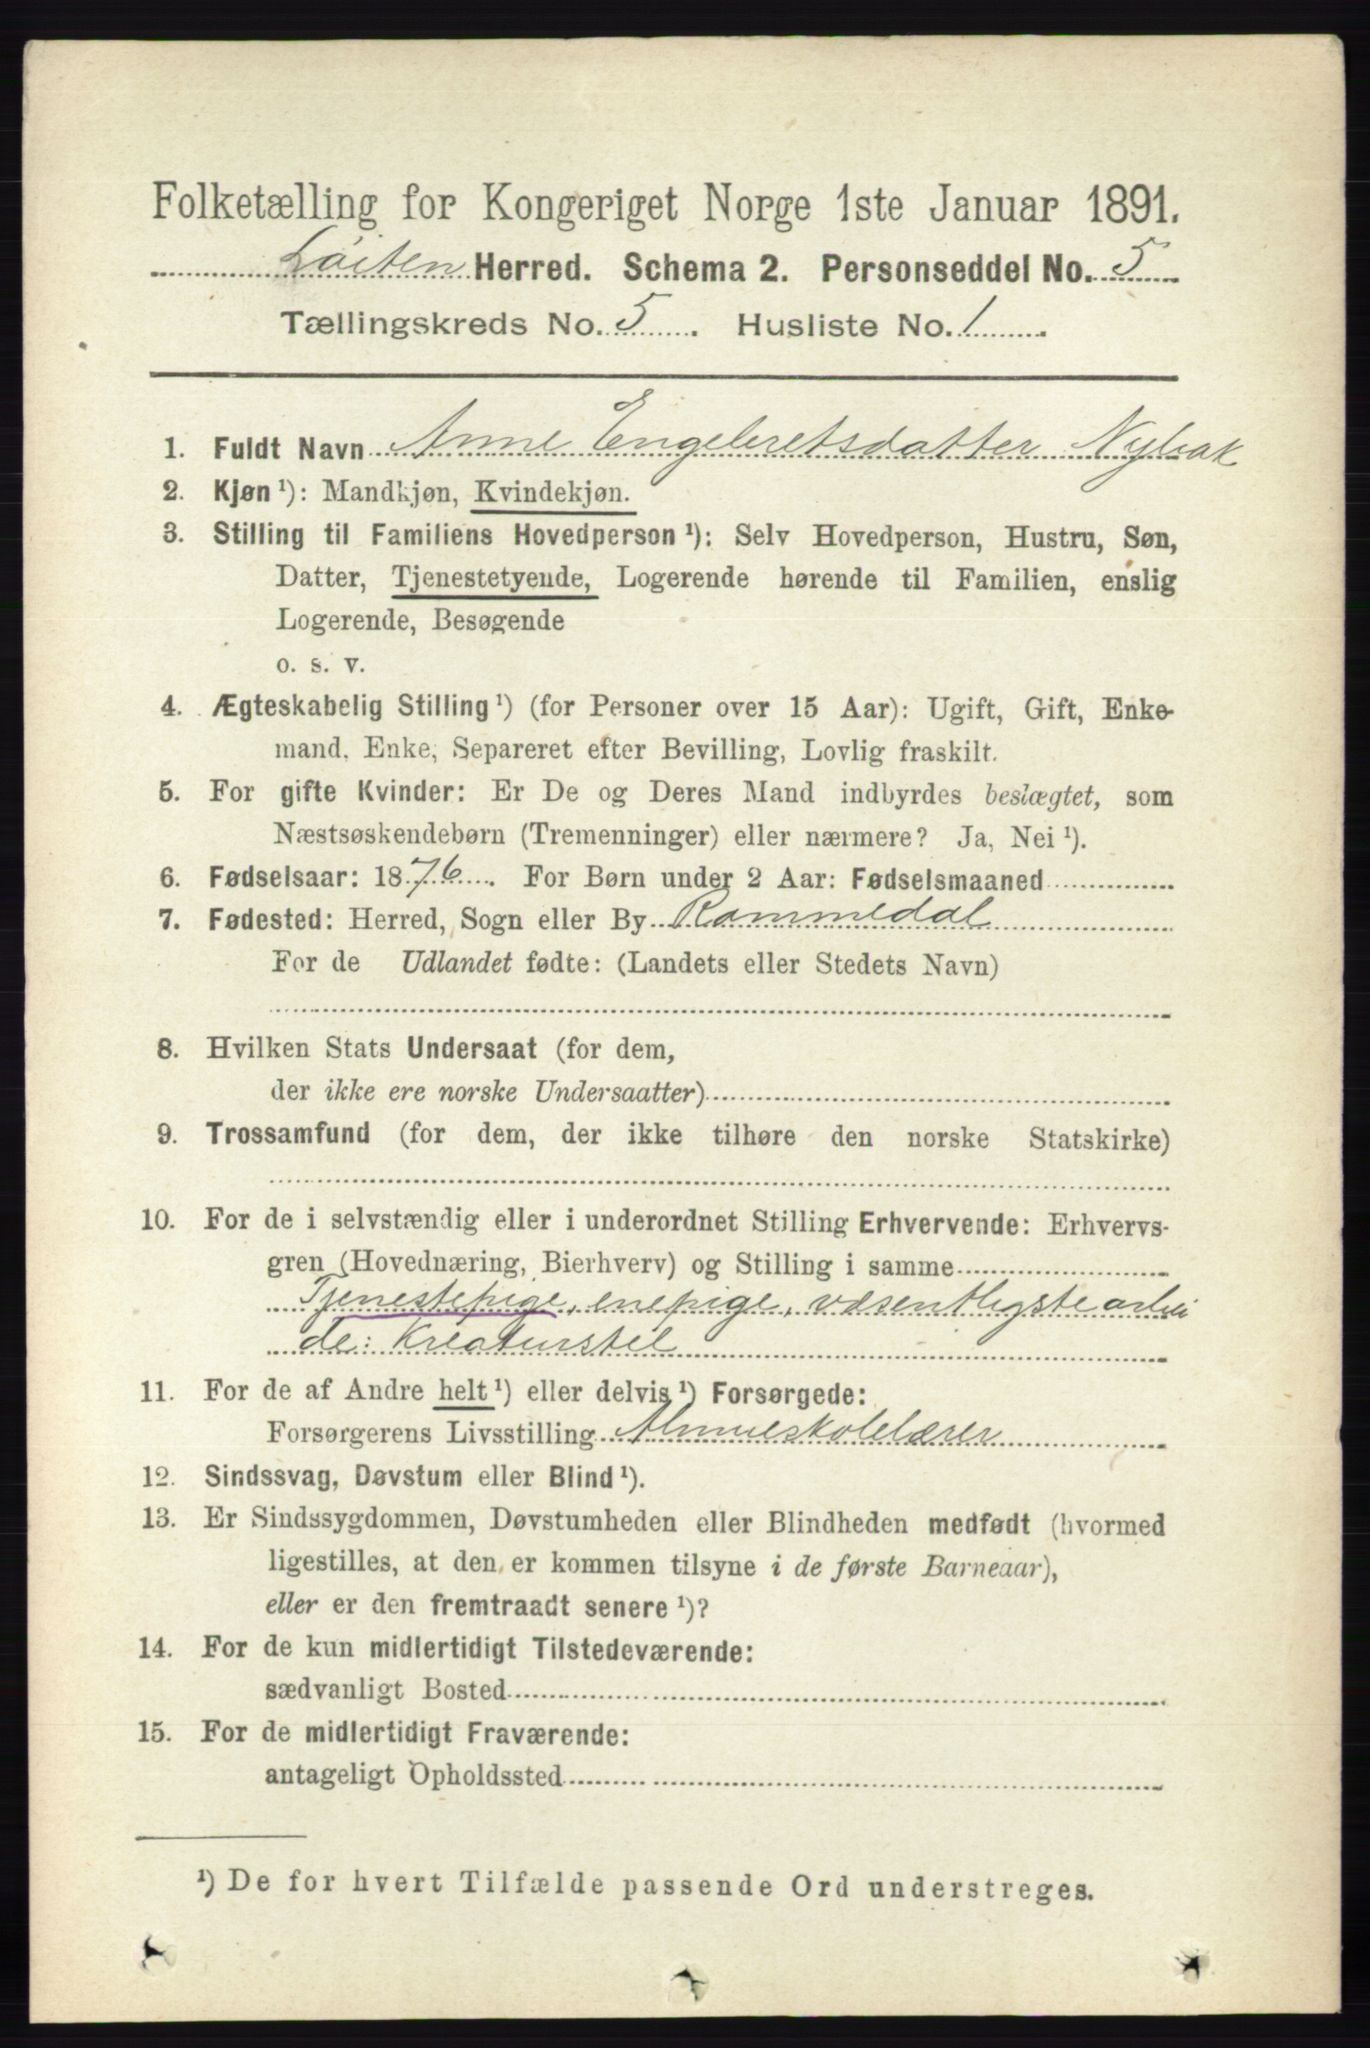 Folketælling for Kongeriget Norge 1ste Januar 1891.
Løiten Herred. Schema 2. Personseddel No. 5
Tællingskreds No. 5. Husliste No. 1.
1. Fuldt Navn Anne Engebretsdatter Nybak
2. Kjøn ¹): Mandkjøn, Kvindekjøn.
3. Stilling til Familiens Hovedperson ¹): Selv Hovedperson, Hustru, Søn,
Datter, Tjenestetyende, Logerende hørende til Familien, enslig
Logerende, Besøgende
o. s. v.
4. Ægteskabelig Stilling ¹) (for Personer over 15 Aar): Ugift, Gift, Enke-
mand, Enke, Separeret efter Bevilling, Lovlig fraskilt.
5. For gifte Kvinder: Er De og Deres Mand indbyrdes beslægtet, som
Næstsøskendebørn (Tremenninger) eller nærmere? Ja, Nei ¹).
6. Fødselsaar: 1876. For Børn under 2 Aar: Fødselsmaaned
7. Fødested: Herred, Sogn eller By Rommedal
For de Udlandet fødte: (Landets eller Stedets Navn)
8. Hvilken Stats Undersaat (for dem,
der ikke ere norske Undersaatter)
9. Trossamfund (for dem, der ikke tilhøre den norske Statskirke)
10. For de i selvstændig eller i underordnet Stilling Erhvervende: Erhvervs-
gren (Hovednæring, Bierhverv) og Stilling i samme
Tjenestepige, enepige, væsentligste arbei
de: Kreaturstel
11. For de af Andre helt ¹) eller delvis ¹) Forsørgede:
Forsørgerens Livsstilling Almueskolelærer
12. Sindssvag, Døvstum eller Blind ¹).
13. Er Sindssygdommen, Døvstumheden eller Blindheden medfødt (hvormed
ligestilles, at den er kommen tilsyne i de første Barneaar),
eller er den fremtraadt senere ¹)?
14. For de kun midlertidigt Tilstedeværende:
sædvanligt Bosted
15. For de midlertidigt Fraværende:
antageligt Opholdssted
¹) De for hvert Tilfælde passende Ord understreges.